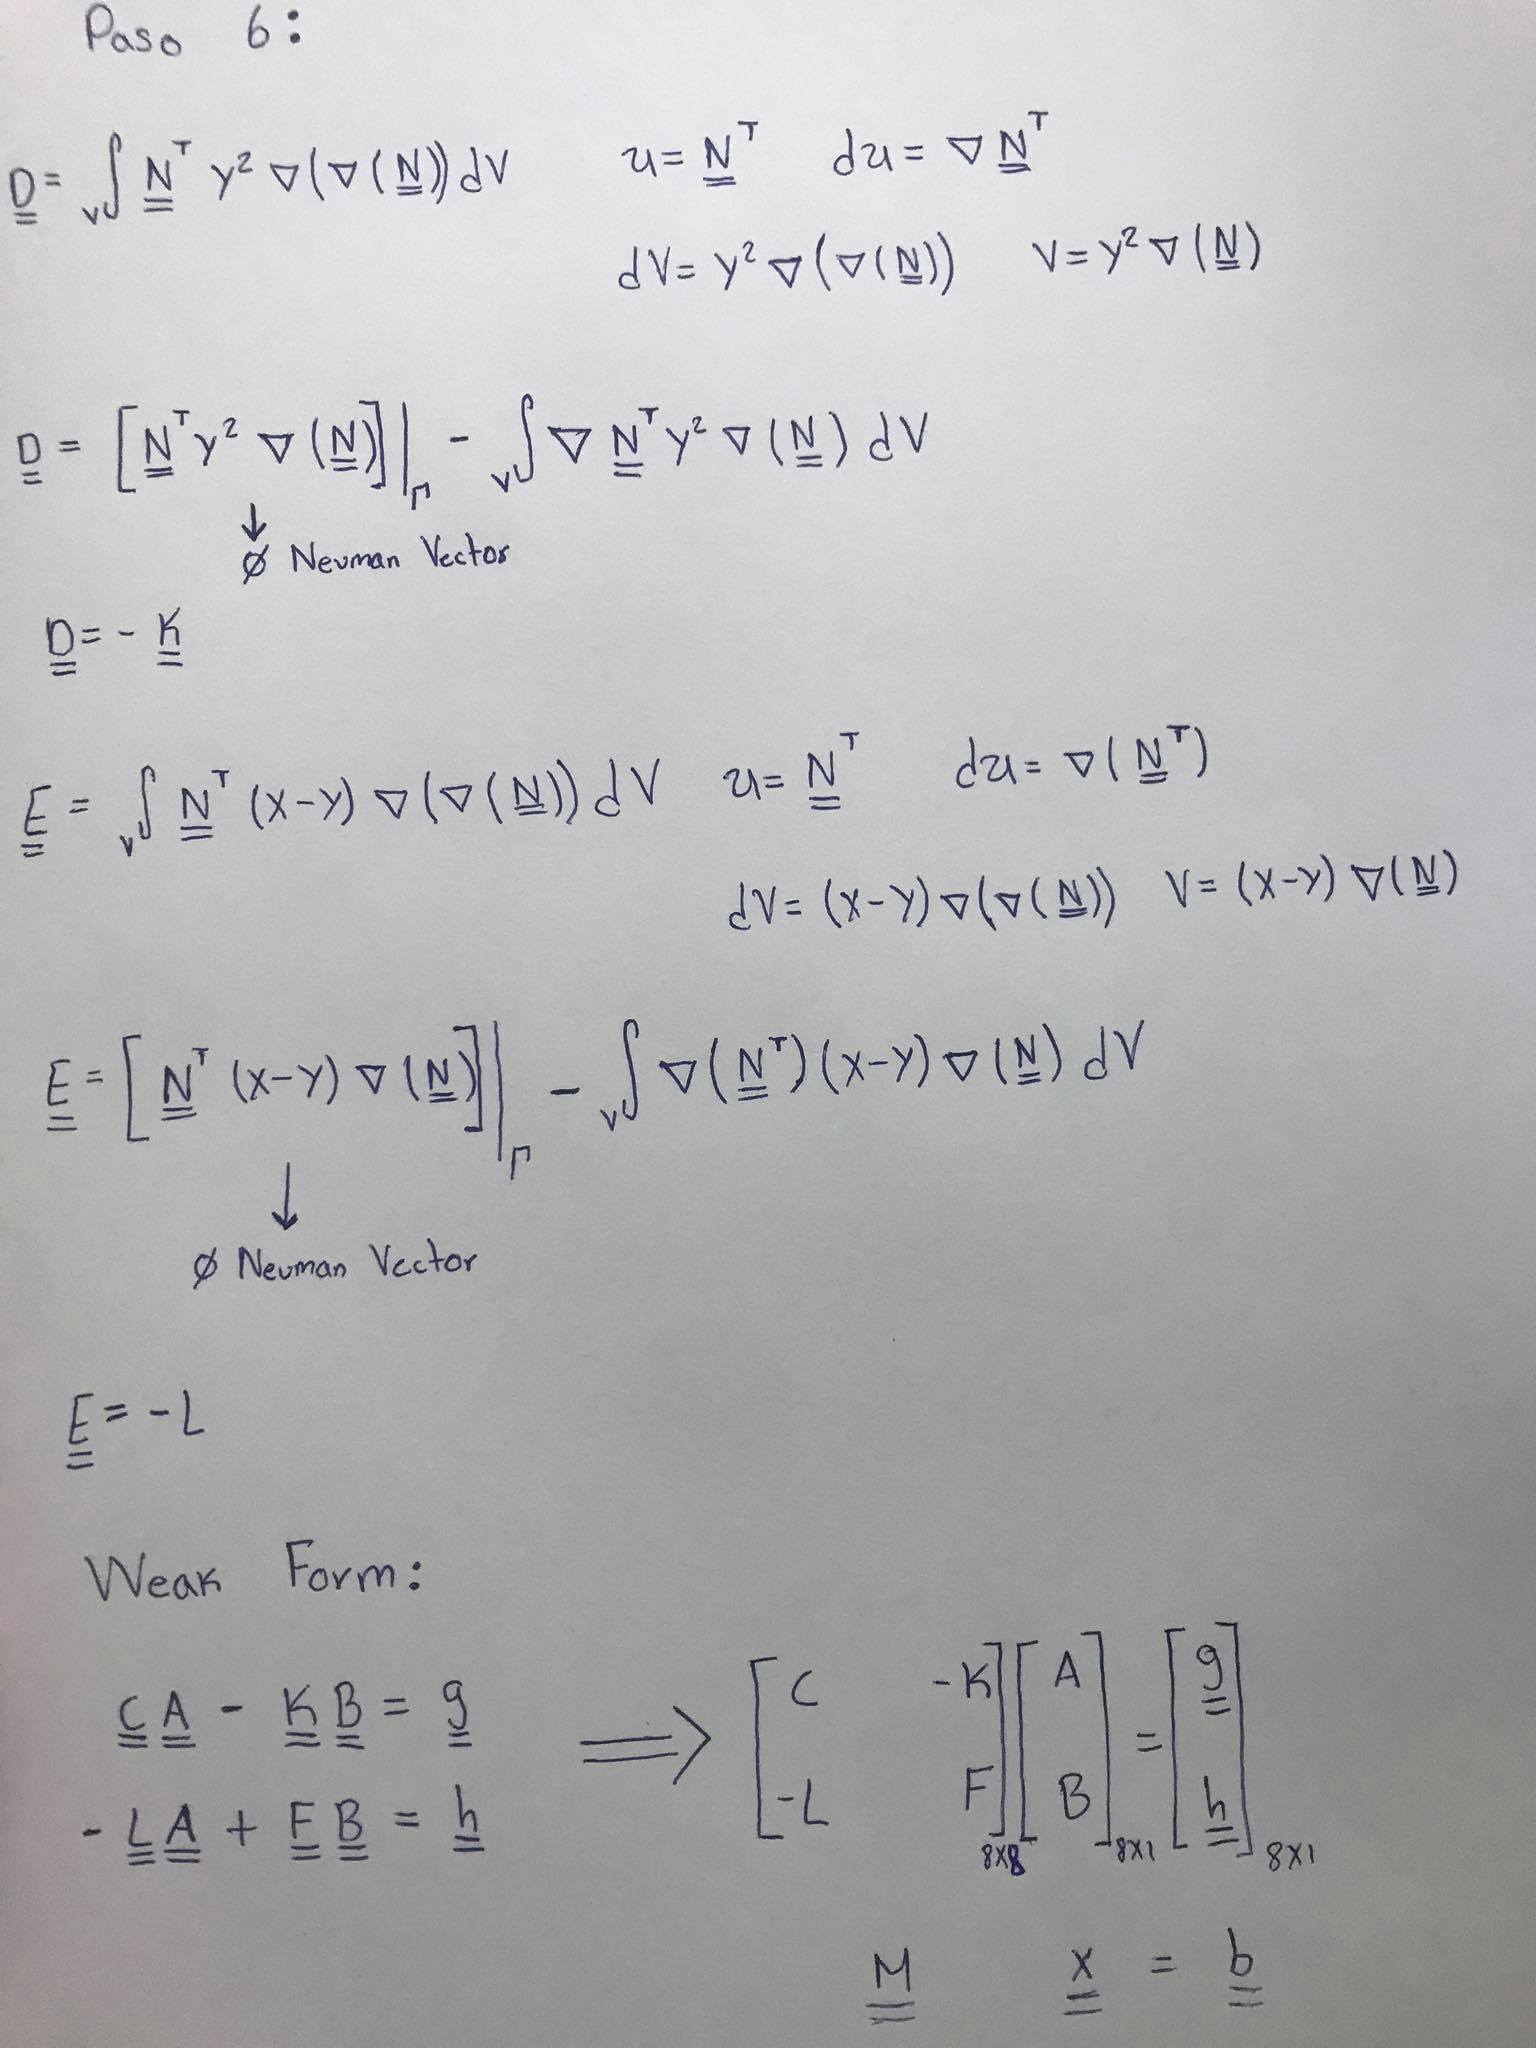 Paso 6:
D = ∫v N^T y² ∇(∇(N)) dV   u = N^T   du = ∇ N^T
dV = y² ∇(∇(N))   V = y² ∇(N)
D = [N^T y² ∇(N)]|Γ - ∫v ∇ N^T y² ∇(N) dV
↓
∅ Neuman Vector
D = - K
E = ∫v N^T (x-y) ∇(∇(N)) dV   u = N^T   du = ∇(N^T)
dV = (x-y) ∇(∇(N))   V = (x-y) ∇(N)
E = [N^T (x-y) ∇(N)]|Γ - ∫v ∇(N^T)(x-y) ∇(N) dV
↓
∅ Neuman Vector
E = -L
Weak Form:
C A - K B = g   ⟹   [C -K] [A] = [g]
- L A + F B = h   [-L F]8x8 [B]8x1 [h]8x1
M x = b